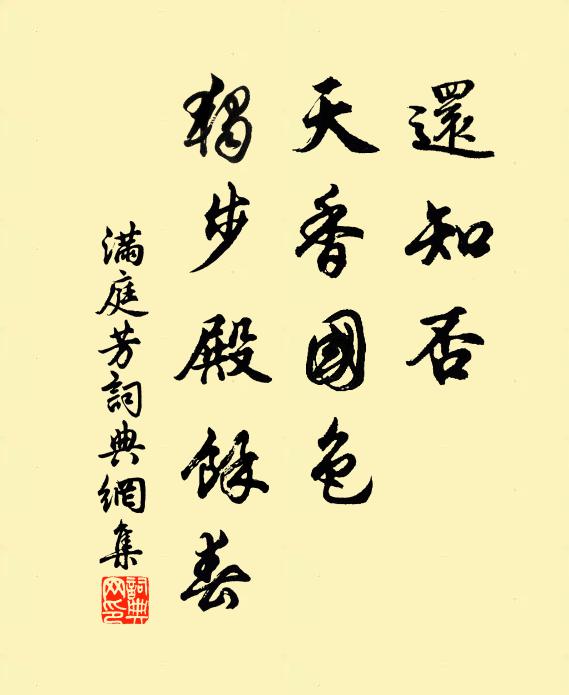 還知否
天香國色
獨步殿餘春
滿庭芳詞典網集
詞典网印